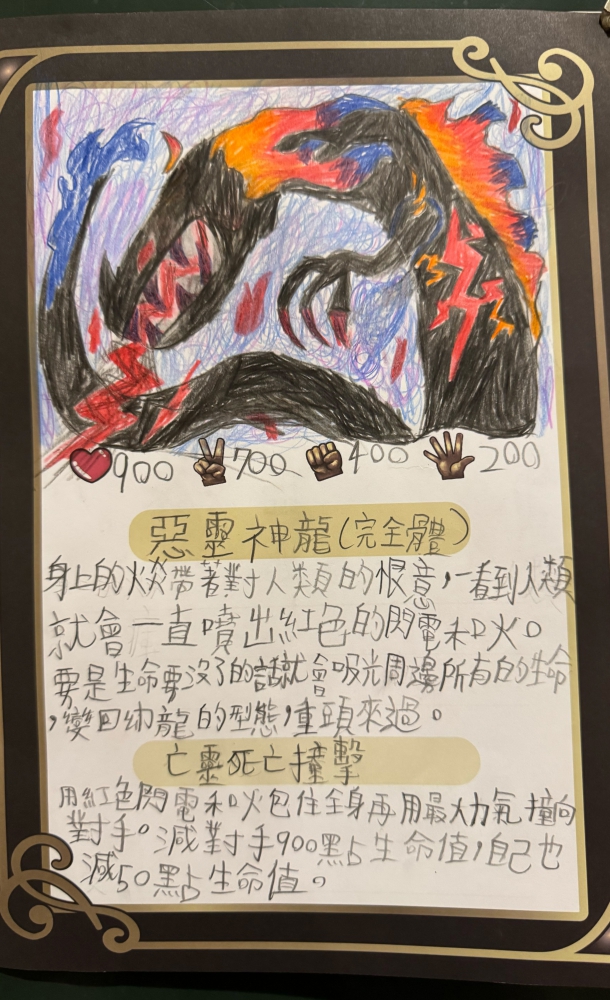 900 700 400 200
惡靈神龍(完全體)
身上的火焱帶著對人類的恨意,一看到人類
就會一直噴出紅色的閃電和火。
要是生命要沒了的話就會吸光周邊所有的生命
,變回幼龍的型態,重頭來過。
亡靈死亡撞擊
用紅色閃電和火包住全身再用最大力氣撞向
對手。減對手900點生命值,自己也
減50點生命值。